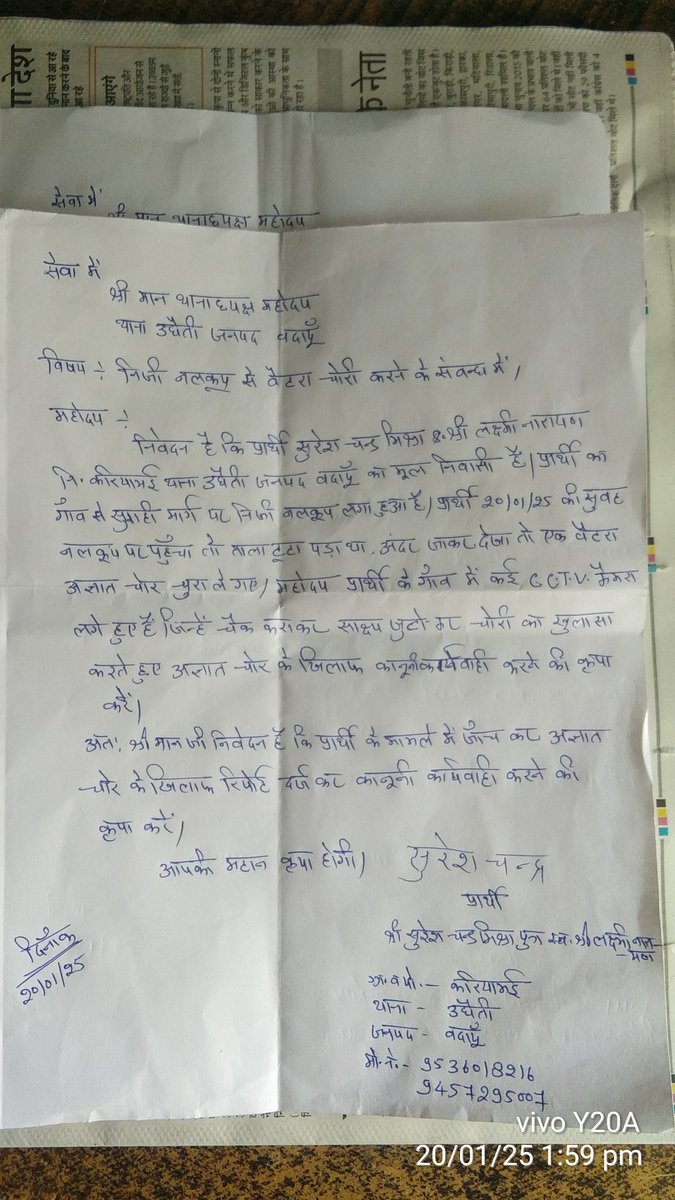 सेवा में
श्री मान थानाध्यक्ष महोदय
सेवा में
श्री मान थानाध्यक्ष महोदय
थाना उघैती जनपद बदायूँ
विषय :- निजी नलकूप से बैटरा चोरी करने के संबन्ध में।
महोदय :-
निवेदन है कि प्रार्थी सुरेश चन्द्र मिश्रा S. श्री लक्ष्मी नारायण
नि. करियामई थाना उघैती जनपद बदायूँ का मूल निवासी है। प्रार्थी का
गाँव से मार्ग पर निजी नलकूप लगा हुआ है। प्रार्थी 20/01/25 की सुबह
नलकूप पर पहुँचा तो ताला टूटा पड़ा था, अंदर जाकर देखा तो एक बैटरा
अज्ञात चोर चुरा ले गए। महोदय प्रार्थी के गाँव में कई C.C.T.V. कैमरा
लगे हुए हैं जिन्हें चैक कराकर साक्ष्य जुटाकर चोरी का खुलासा
करते हुए अज्ञात चोर के खिलाफ कानूनी कार्यवाही करने की कृपा
करें।
अतः श्री मान जी निवेदन है कि प्रार्थी के मामले में जाँच कर अज्ञात
चोर के खिलाफ रिपोर्ट दर्ज कर कानूनी कार्यवाही करने की
कृपा करें।
आपकी महान कृपा होगी।
सुरेश चन्द्र
प्रार्थी
श्री सुरेश चन्द्र मिश्रा पुत्र स्व. श्री लक्ष्मी नारायण
दिनाँक
20/01/25
ग्रा. व पो. - करियामई
थाना - उघैती
जनपद - बदायूँ
मो. नं. - 9536018216
9457295007
vivo Y20A
20/01/25 1:59 pm